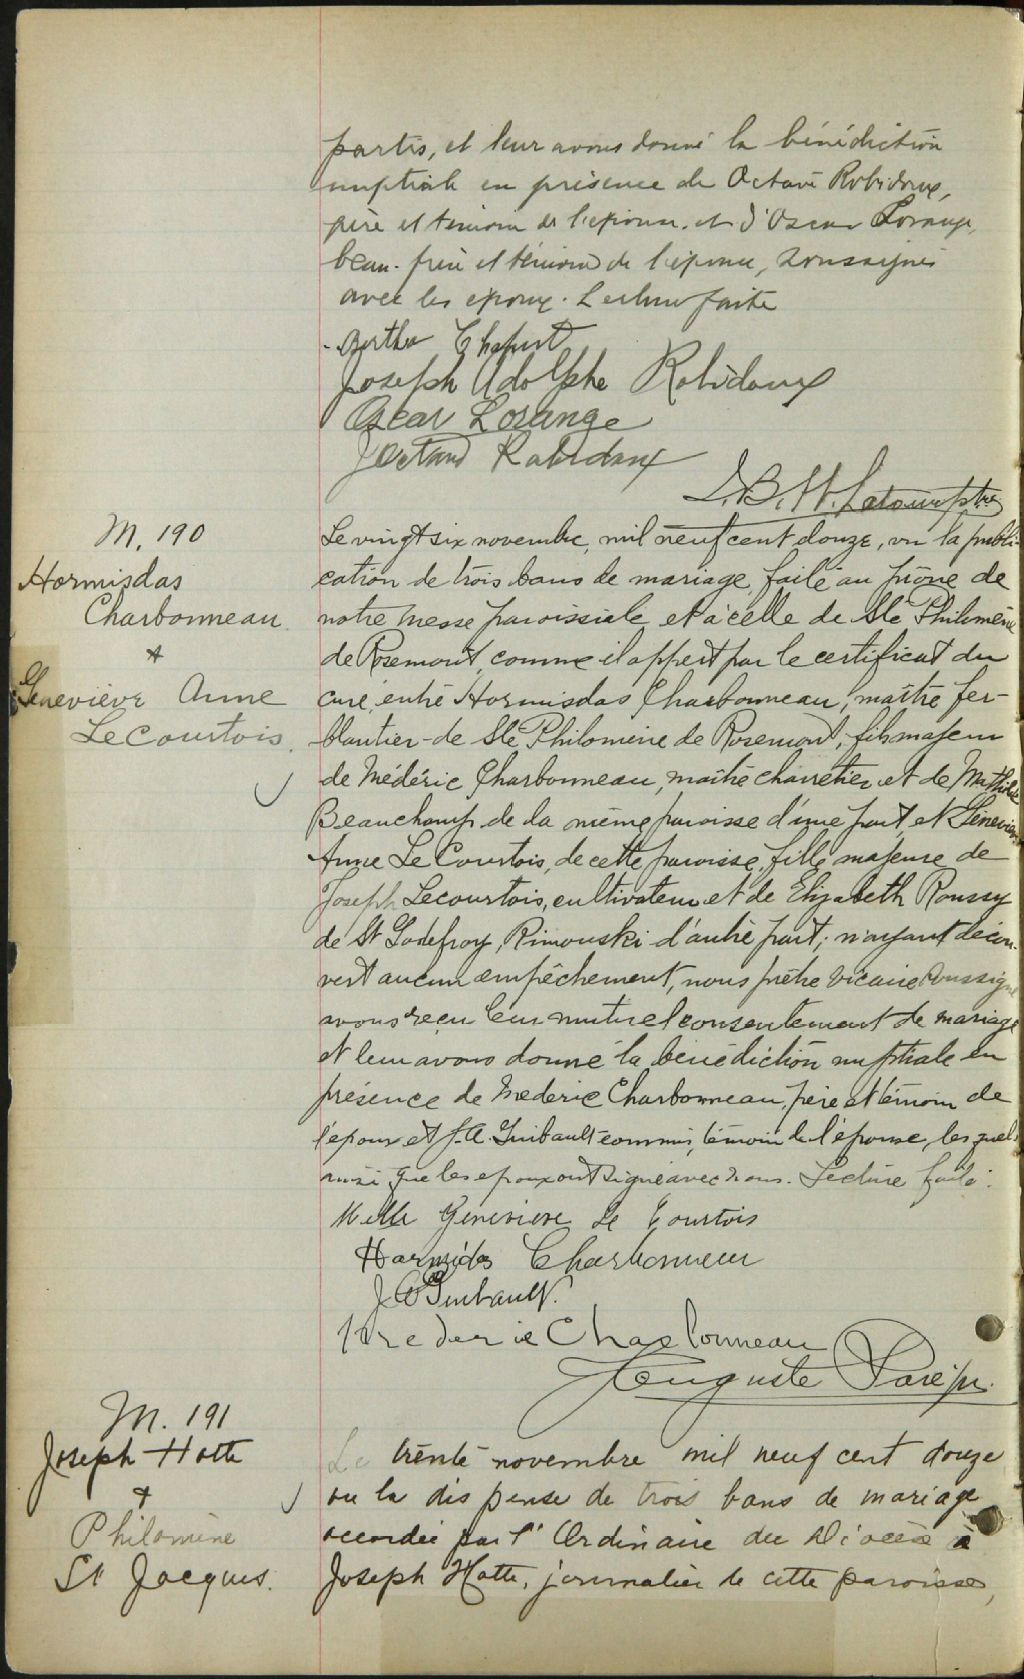 parties, et leur avons donné la bénédiction
nuptiale en présence de Octave Robidoux,
père et témoin de l'époux et d'Oscar Lorange,
beau-frère et témoin de l'épouse, soussignés
avec les époux. Lecture faite
Bertha Chaput
Joseph Adolphe Robidoux
Oscar Lorange
Octave Robidoux
J. B. H. Latour ptre
M. 190
Hormisdas
Charbonneau
&
Geneviève Anne
LeCourtois.
Le vingt six novembre, mil neuf cent douze, vu la publi-
cation de trois bans de mariage faite au prône de
notre messe paroissiale et à celle de Ste Philomène
de Rosemont, comme il appert par le certificat du
curé, entre Hormisdas Charbonneau, maître fer-
blantier de Ste Philomène de Rosemont, fils majeur
de Médéric Charbonneau, maître charretier et de Mathilde
Beauchamp de la même paroisse d'une part, et Geneviève
Anne Le Courtois, de cette paroisse, fille majeure de
Joseph Lecourtois, cultivateur et de Elizabeth Roussy
de St Godefroy, Rimouski d'autre part; n'ayant décou-
vert aucun empêchement, nous prêtre vicaire soussigné
avons reçu leur mutuel consentement de mariage
et leur avons donné la bénédiction nuptiale en
présence de Mederic Charbonneau, père et témoin de
l'époux et J. A. Guibault commis, témoin de l'épouse, les quels
ainsi que les epoux ont signé avec nous. Lecture faite.
Melle Genevieve Le Courtois
Harmidas Charbonneau
J A Guibault.
Mederic Charbonneau
Auguste Paré ptr.
M. 191
Joseph Hotte
&
Philomène
St Jacques.
Le trente novembre mil neuf cent douze
vu la dispense de trois bans de mariage
accordée par l'Ordinaire du Diocèse à
Joseph Hotte, journalier de cette paroisse,